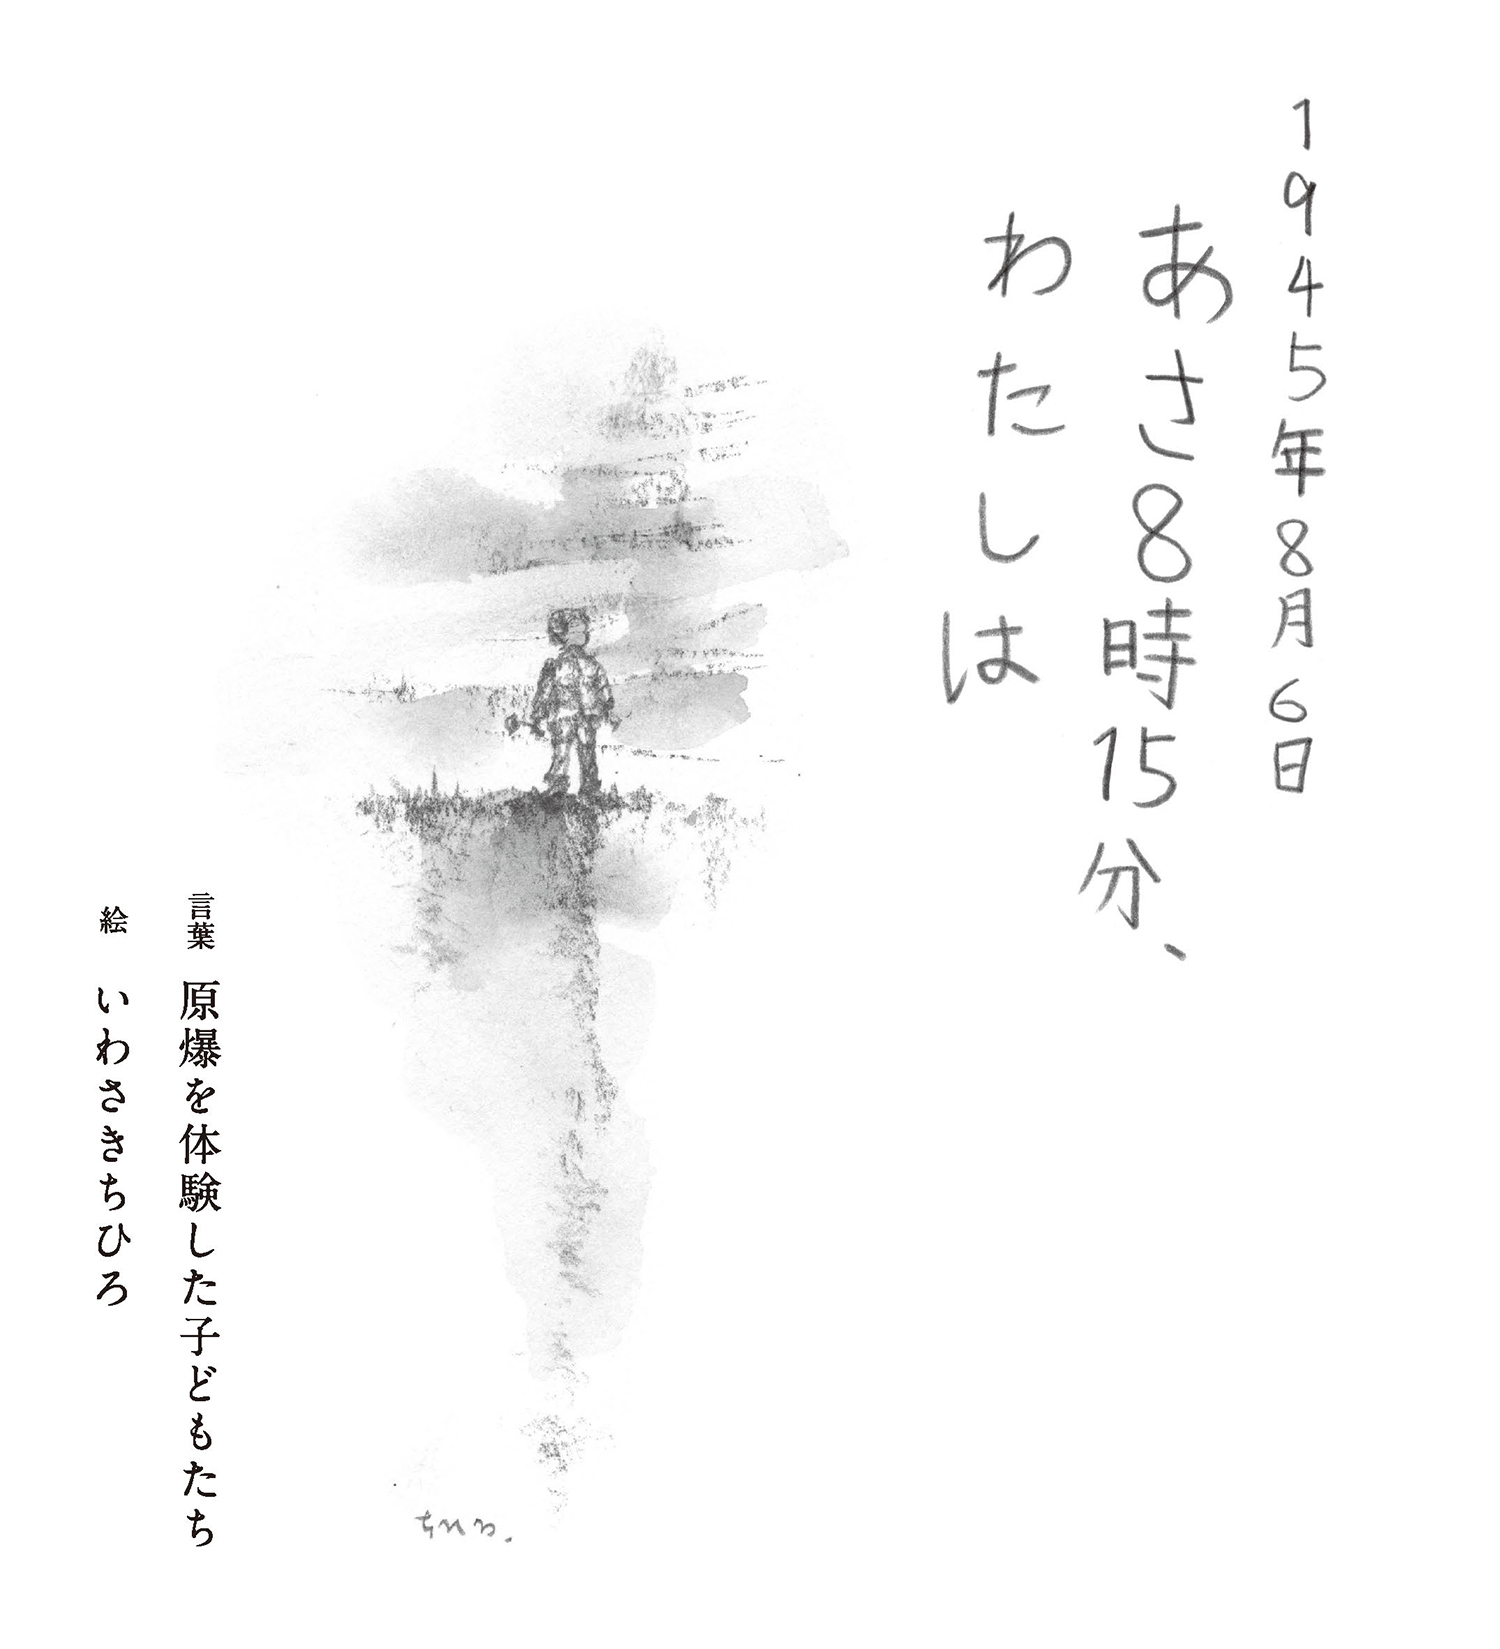 1945年8月6日
あさ8時15分、
わたしは
言葉 原爆を体験した子どもたち
絵 いわさきちひろ
ちひろ.